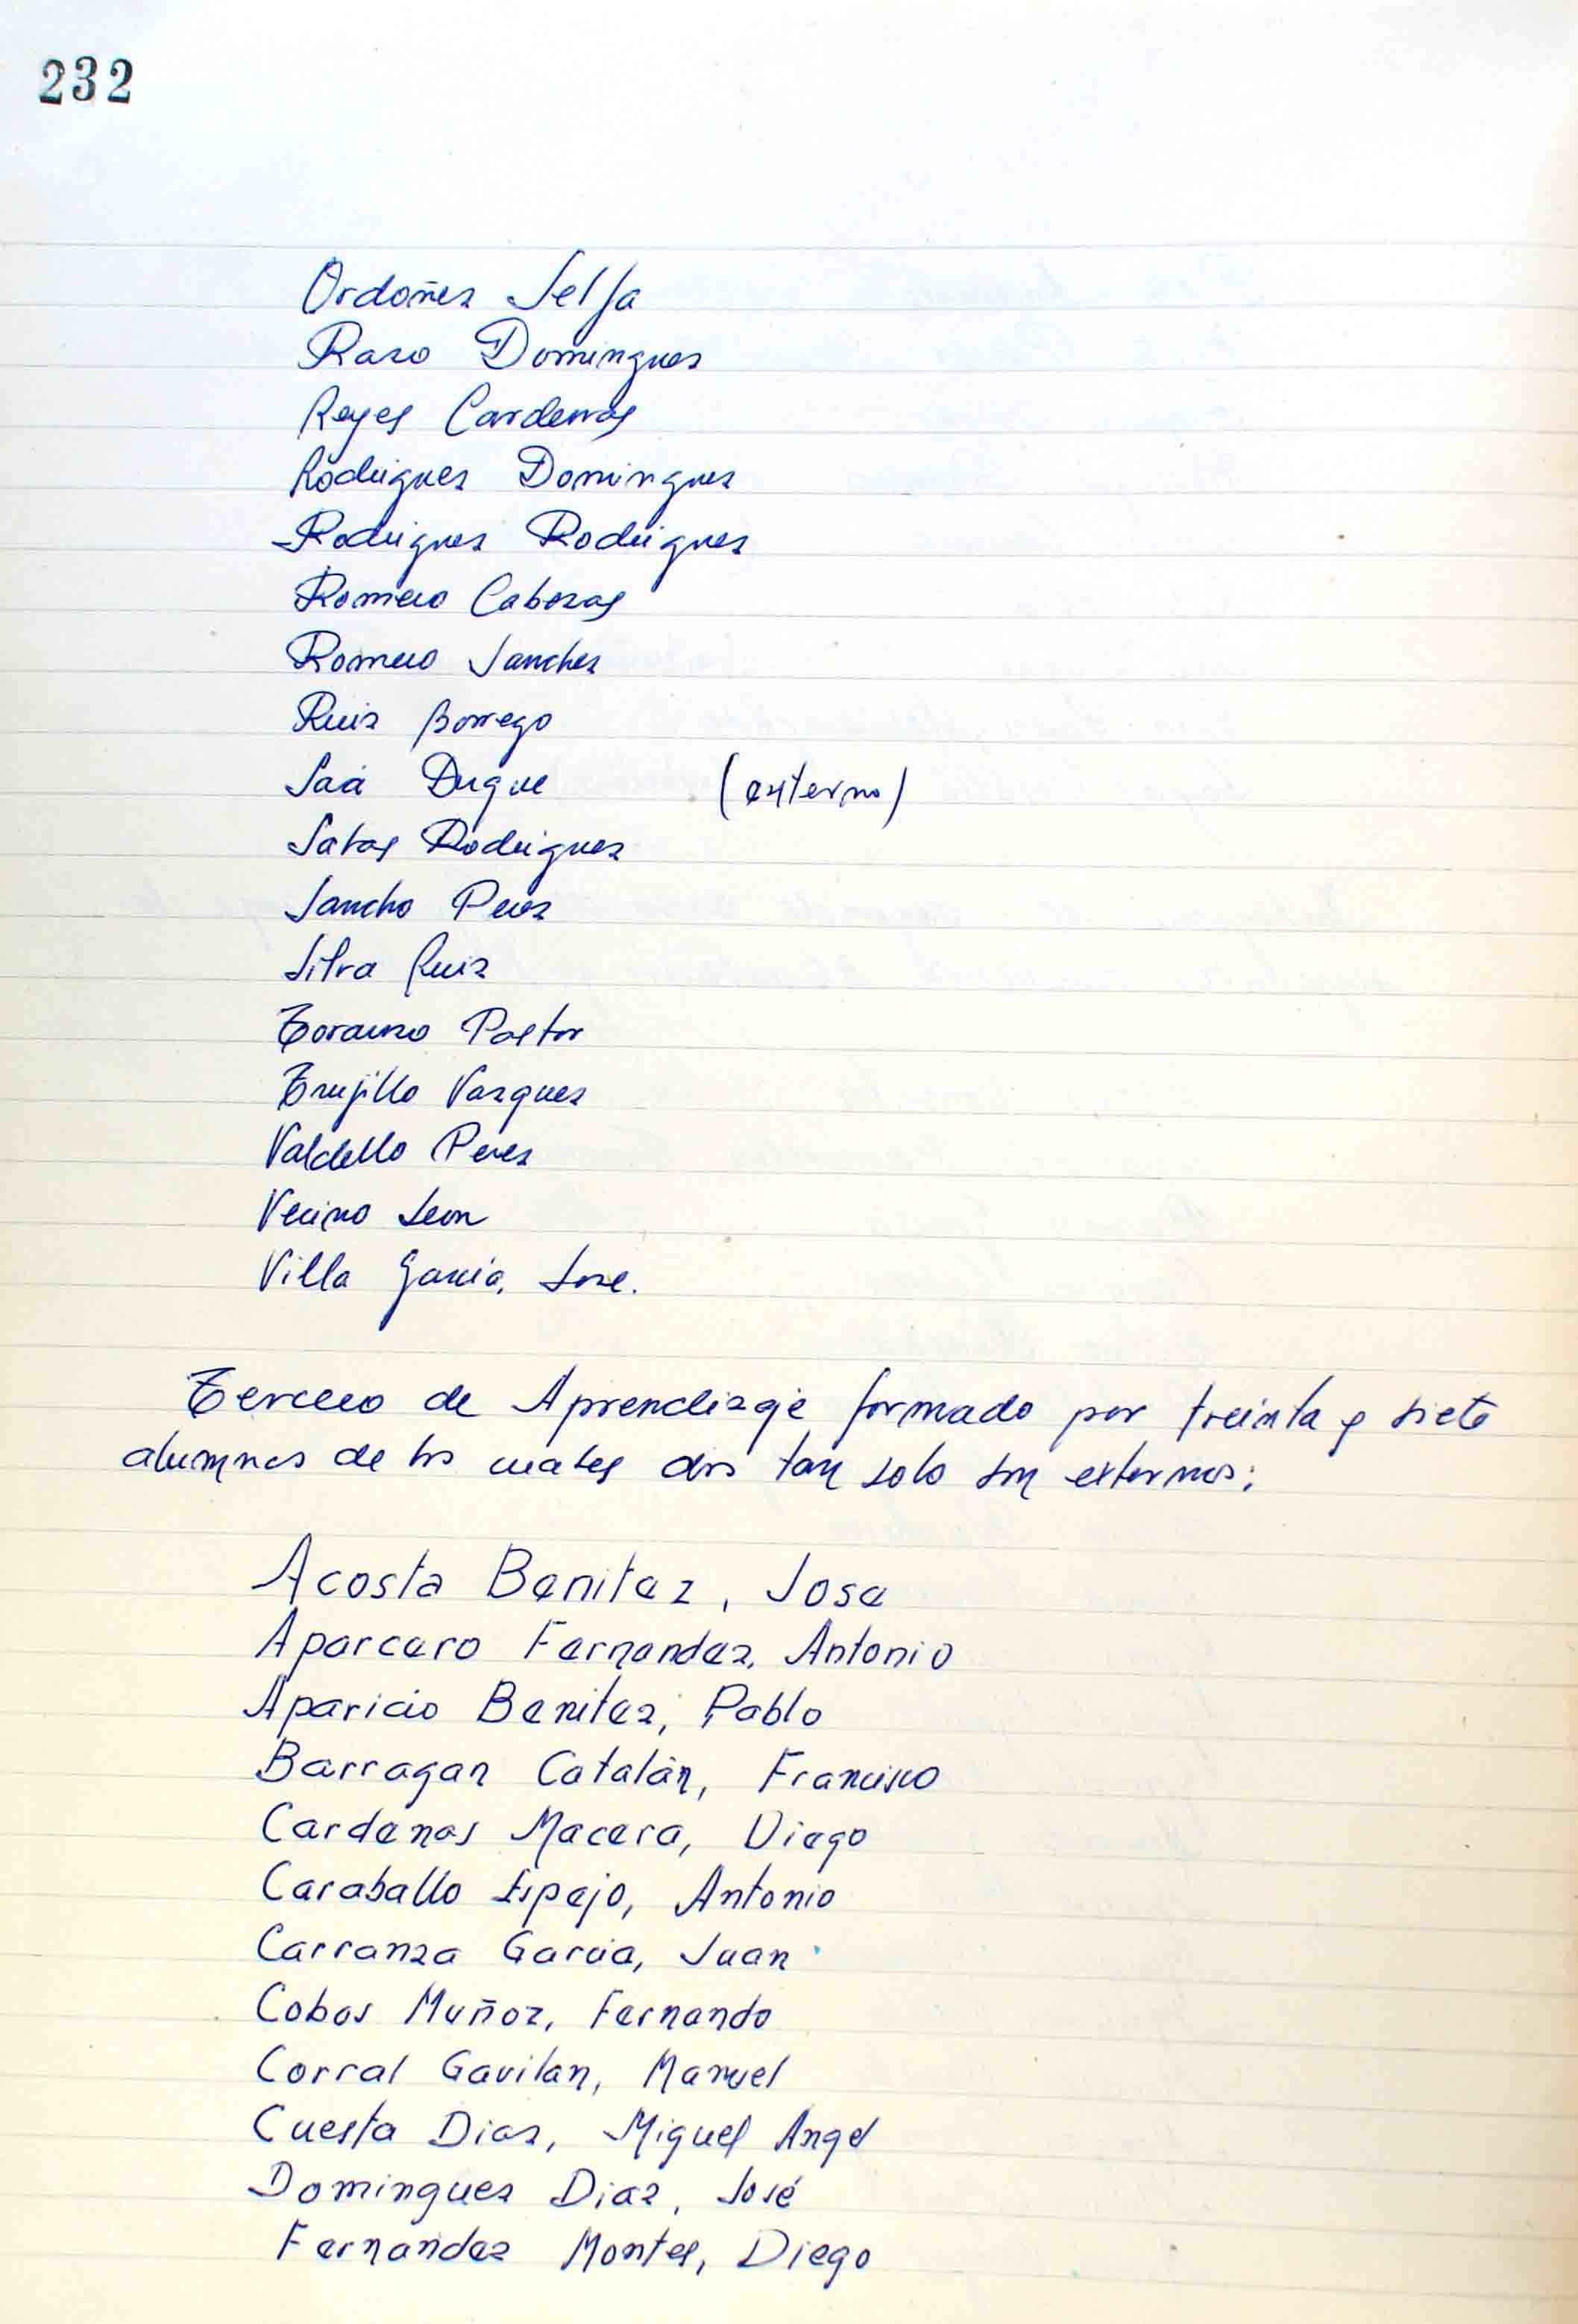 232
Ordoñez Selfa
Raso Dominguez
Reyes Cardenas
Rodriguez Dominguez
Rodriguez Rodriguez
Romero Cabezas
Romero Sanchez
Ruiz Borrego
Saá Duque (externo)
Sabas Rodriguez
Sancho Perez
Silva Ruiz
Pastor
Trujillo Vazquez
Valdello Perez
Vecino Leon
Villa Garcia, Jose.
Tercero de Aprendizaje formado por treinta y siete
alumnos de los cuales dos tan solo son externos:
Acosta Benitez, Jose
Aparcero Fernandez, Antonio
Aparicio Benitez, Pablo
Barragan Catalán, Francisco
Cardenas Macera, Diego
Caraballo Espejo, Antonio
Carranza Garcia, Juan
Cobos Muñoz, Fernando
Corral Gavilan, Manuel
Cuesta Diaz, Miguel Angel
Dominguez Diaz, José
Fernandez Montes, Diego